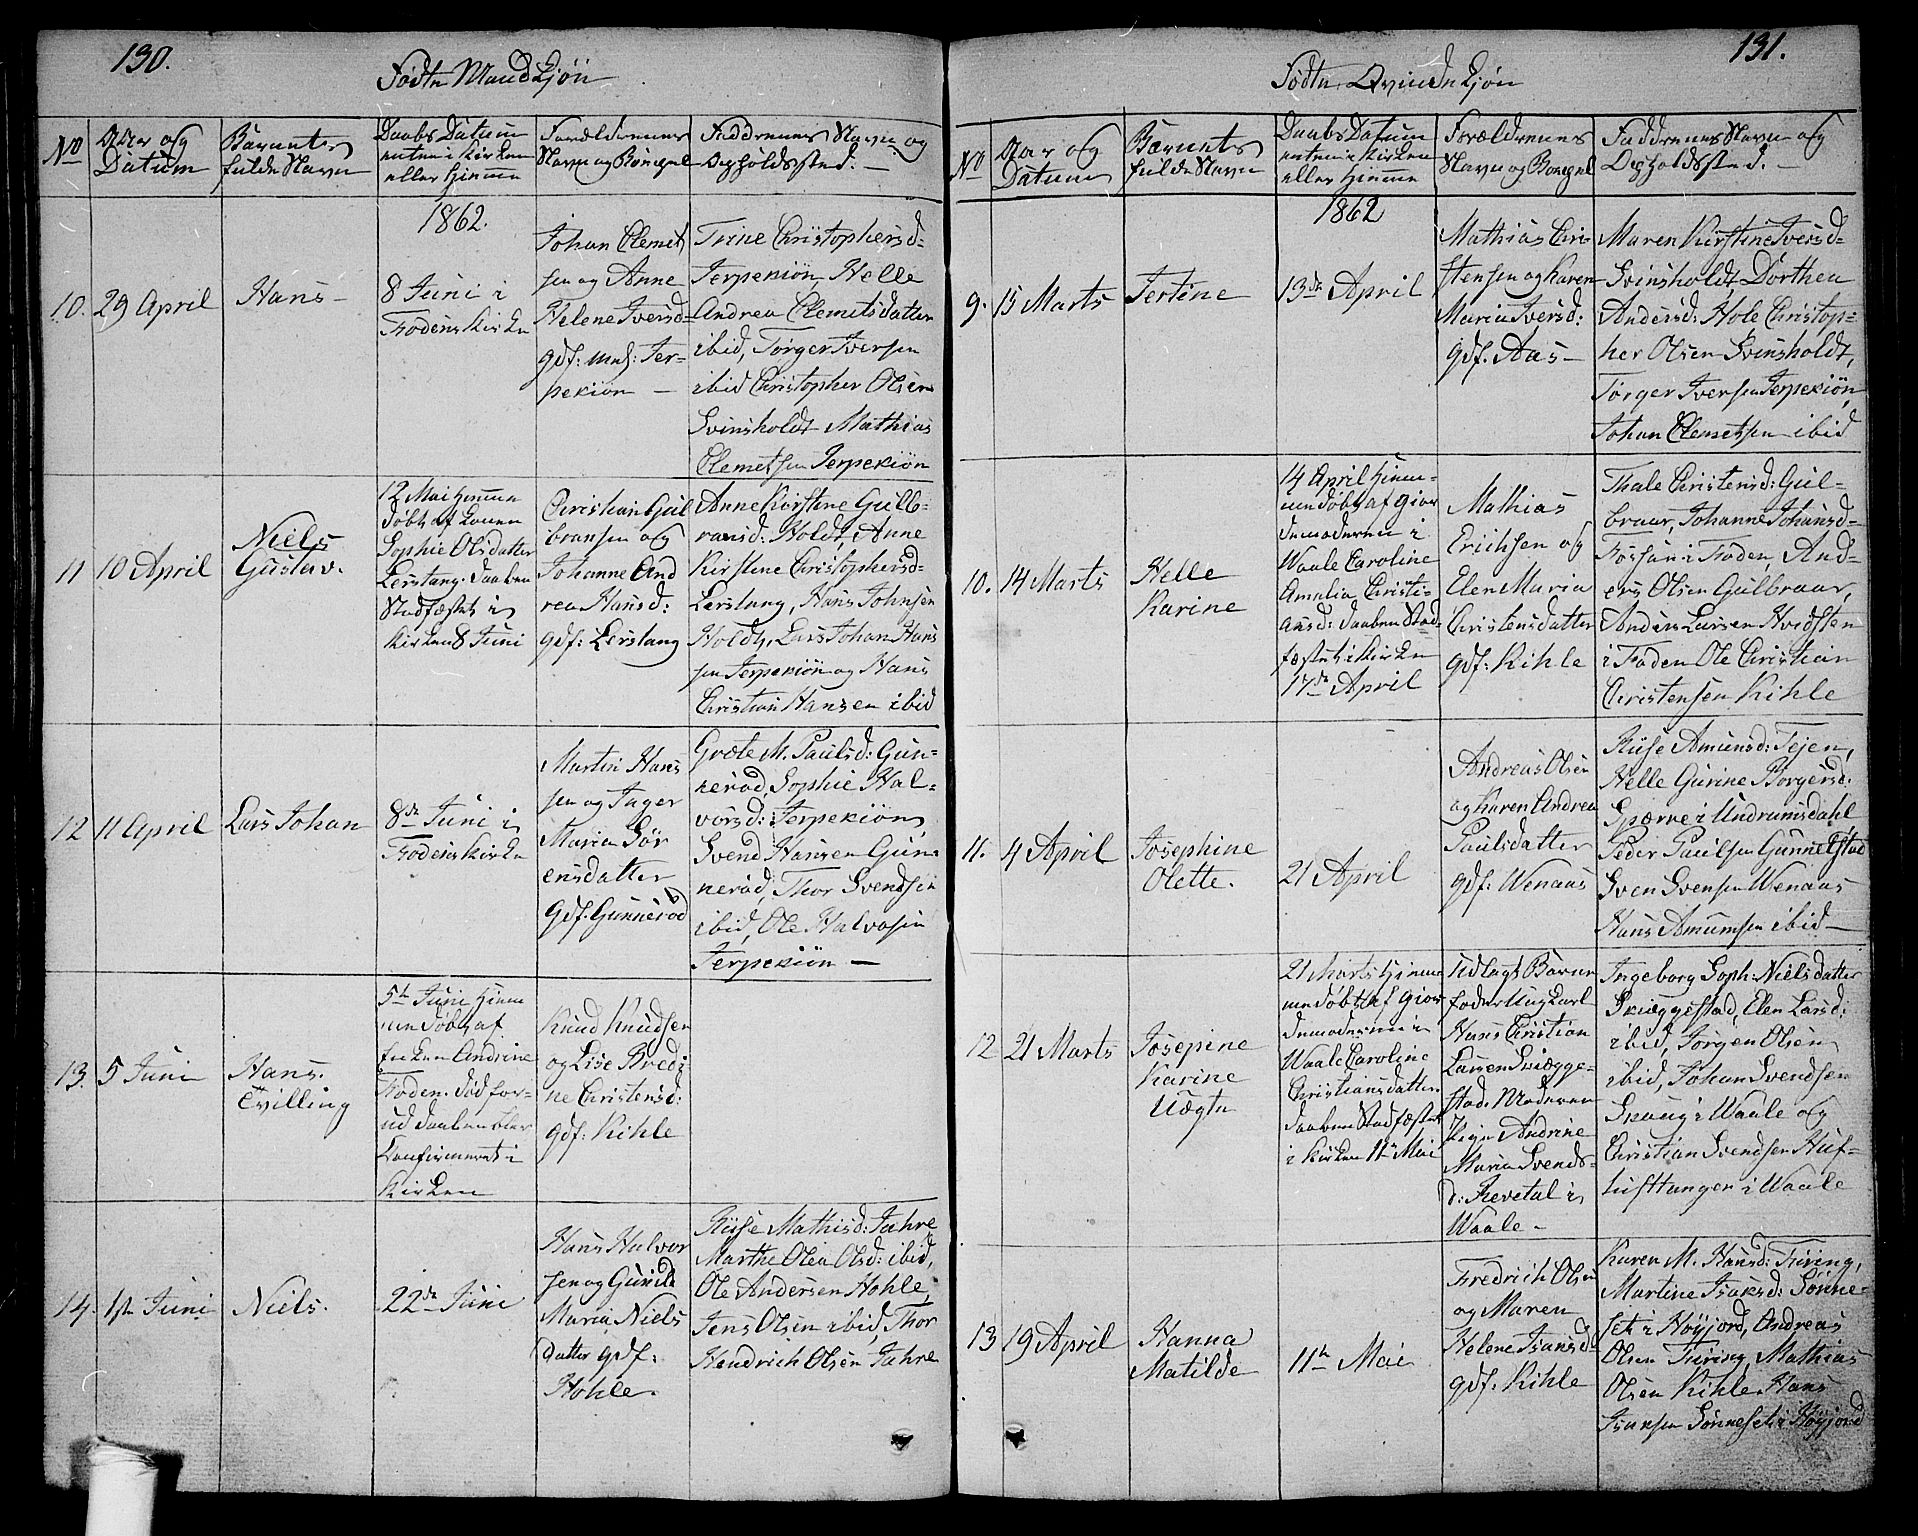 130.
Födte Mandkjön
No
Aar og
Datum
Barnets
fulde Navn
Daabs Datum
enten i Kirken
eller Hjemme
Forældrenes
Navn og Borgel
Faddrenes Navn og
Opholdssted.
1862.
10.
29 April
Hans
8 Juni i
Fodens Kirke
Johan Clemet
sen og Anne
Helene Iversd
gdf: Jer-
pekiön
Trine Christophersd-
Jerpekiön, Helle
Andrea Clemetsdatter
ibid, Törger Iversen
ibid Christopher Olsen
Svinsholdt Mathias
Clemetsen Jerpekiön
11
10 April
Niels
Gustav.
12 Mai Hjemme
döbt af Konen
Sophie Olsdatter
Lerstang. Daaben
Stadfæstet i
Kirken 8 Juni
Christian Gul
bransen og
Johanne And
rea Hansd:
gdf: Lerstang
Anne Kirstine Gulb-
ransd: Holdt, Anne
Kirstine Christophersd-
Lerstang, Hans Johnsen
Holdt, Lars Johan Hans
sen Jerpekiön og Hans
Christian Hansen ibid
12
11 April
Lars Johan
8de Juni i
Fodens Kirke
Martin Hans
sen og Inger
Maria Sör
ensdatter
gdf. Gunneröd
Grethe M. Paulsd: Gun-
neröd, Sophie Hal-
vorsd: Jerpekiön,
Svend Hansen Gun-
neröd, Thor Svendsen
ibid, Ole Halvosen
Jerpekiön
13.
5 Juni
Hans.
Tvilling
5te Juni Hjem
me döbt af
Andrine
Foden. Död for-
ud Daaben blev
Confirmeret i
Kirken
Knud Knudsen
og Lise Bredi
ne Christensd:
gdf: Kihle
14.
1ste Juni
Niels.
22de Juni
Hans Halvor
sen og Gunild
Maria Niels
datter gdf:
Hohle.
Kisse Mathisd: Jahre
Marthe Olea Olsd: ibid,
Ole Andersen Hohle,
Jens Olsen ibid, Thor
Hendrich Olsen Jahre
131.
Födte Qvindekjön
No
Aar og
Datum
Barnets
fulde Navn
Daabs Datum
enten i Kirken
eller Hjemme
Forældrenes
Navn og Borgel
Faddrenes Navn og
Opholdssted.
1862
9.
15 Marts
Tertine
13de April
Mathias Chri
stensen og Karen
Maria Iversd:
gdf. Aas
Maren Kirstine Iversd-
Svinsholdt, Dorthea
Andersd: Hole Christop-
her Olsen Svinsholdt,
Törger Iversen Jerpekiön,
Johan Clemetsen ibid
10.
14 Marts
Helle
Karine
14 April Hjem-
me döbt af Gior
demoderen i
Waale Caroline
Amalia Christi-
ansd: Daaben Stad-
fæstet i Kirken
17de April
Mathias
Erichsen og
Elen Maria
Christensdatter
gdf: Kihle
Thale Christensd: Gul-
braar, Johanne Johansd-
Fossan i Foden, And-
ers Olsen Gulbraar,
Anders Larsen Hvidsten
i Foden Ole Christian
Christensen Kihle
11.
4 April
Josephine
Olette.
21 April
Andreas Olsen
og Karen Andrea
Paulsdatter
gdf: Wenaas
Kisse Amunsd: Tejen,
Helle Gurine Borgersd:
Spærre i Undrumsdahl
Peder Paulsen Gunnelstad
Sven Svensen Wenaas
Hans Amumsen ibid
12
21 Marts
Josepine
Karine
Uægte
21 Marts Hjem
me döbt af Gior
demoderen i
Waale Caroline
Christiansdatter.
Daaben Stadfæstet
i Kirken 11te Mai
Udlagt Barne
fader Ungkarl
Hans Christian
Larsen Skiægge-
stad. Moderen
Pige Andrine
Maria Svends-
d: Revetal i
Waale
Ingeborg Soph: Nielsdatter
Skiæggestad, Elen Larsd:
ibid, Jörgen Olsen
ibid, Johan Svendsen
Skaug i Waale og
Christian Svendsen Huf-
i Waale
13
19 April
Hanna
Matilde
11te Mai
Fredrich Olsen
og Maren
Helene Isansd
gdf: Kihle
Karen M. Hansd: Furing,
Martine Isaksd: Sönne-
set i Höyjord, Andreas
Olsen Furing, Mathias
Olsen Kihle, Hans
Isansen Sönneset i Höyjord